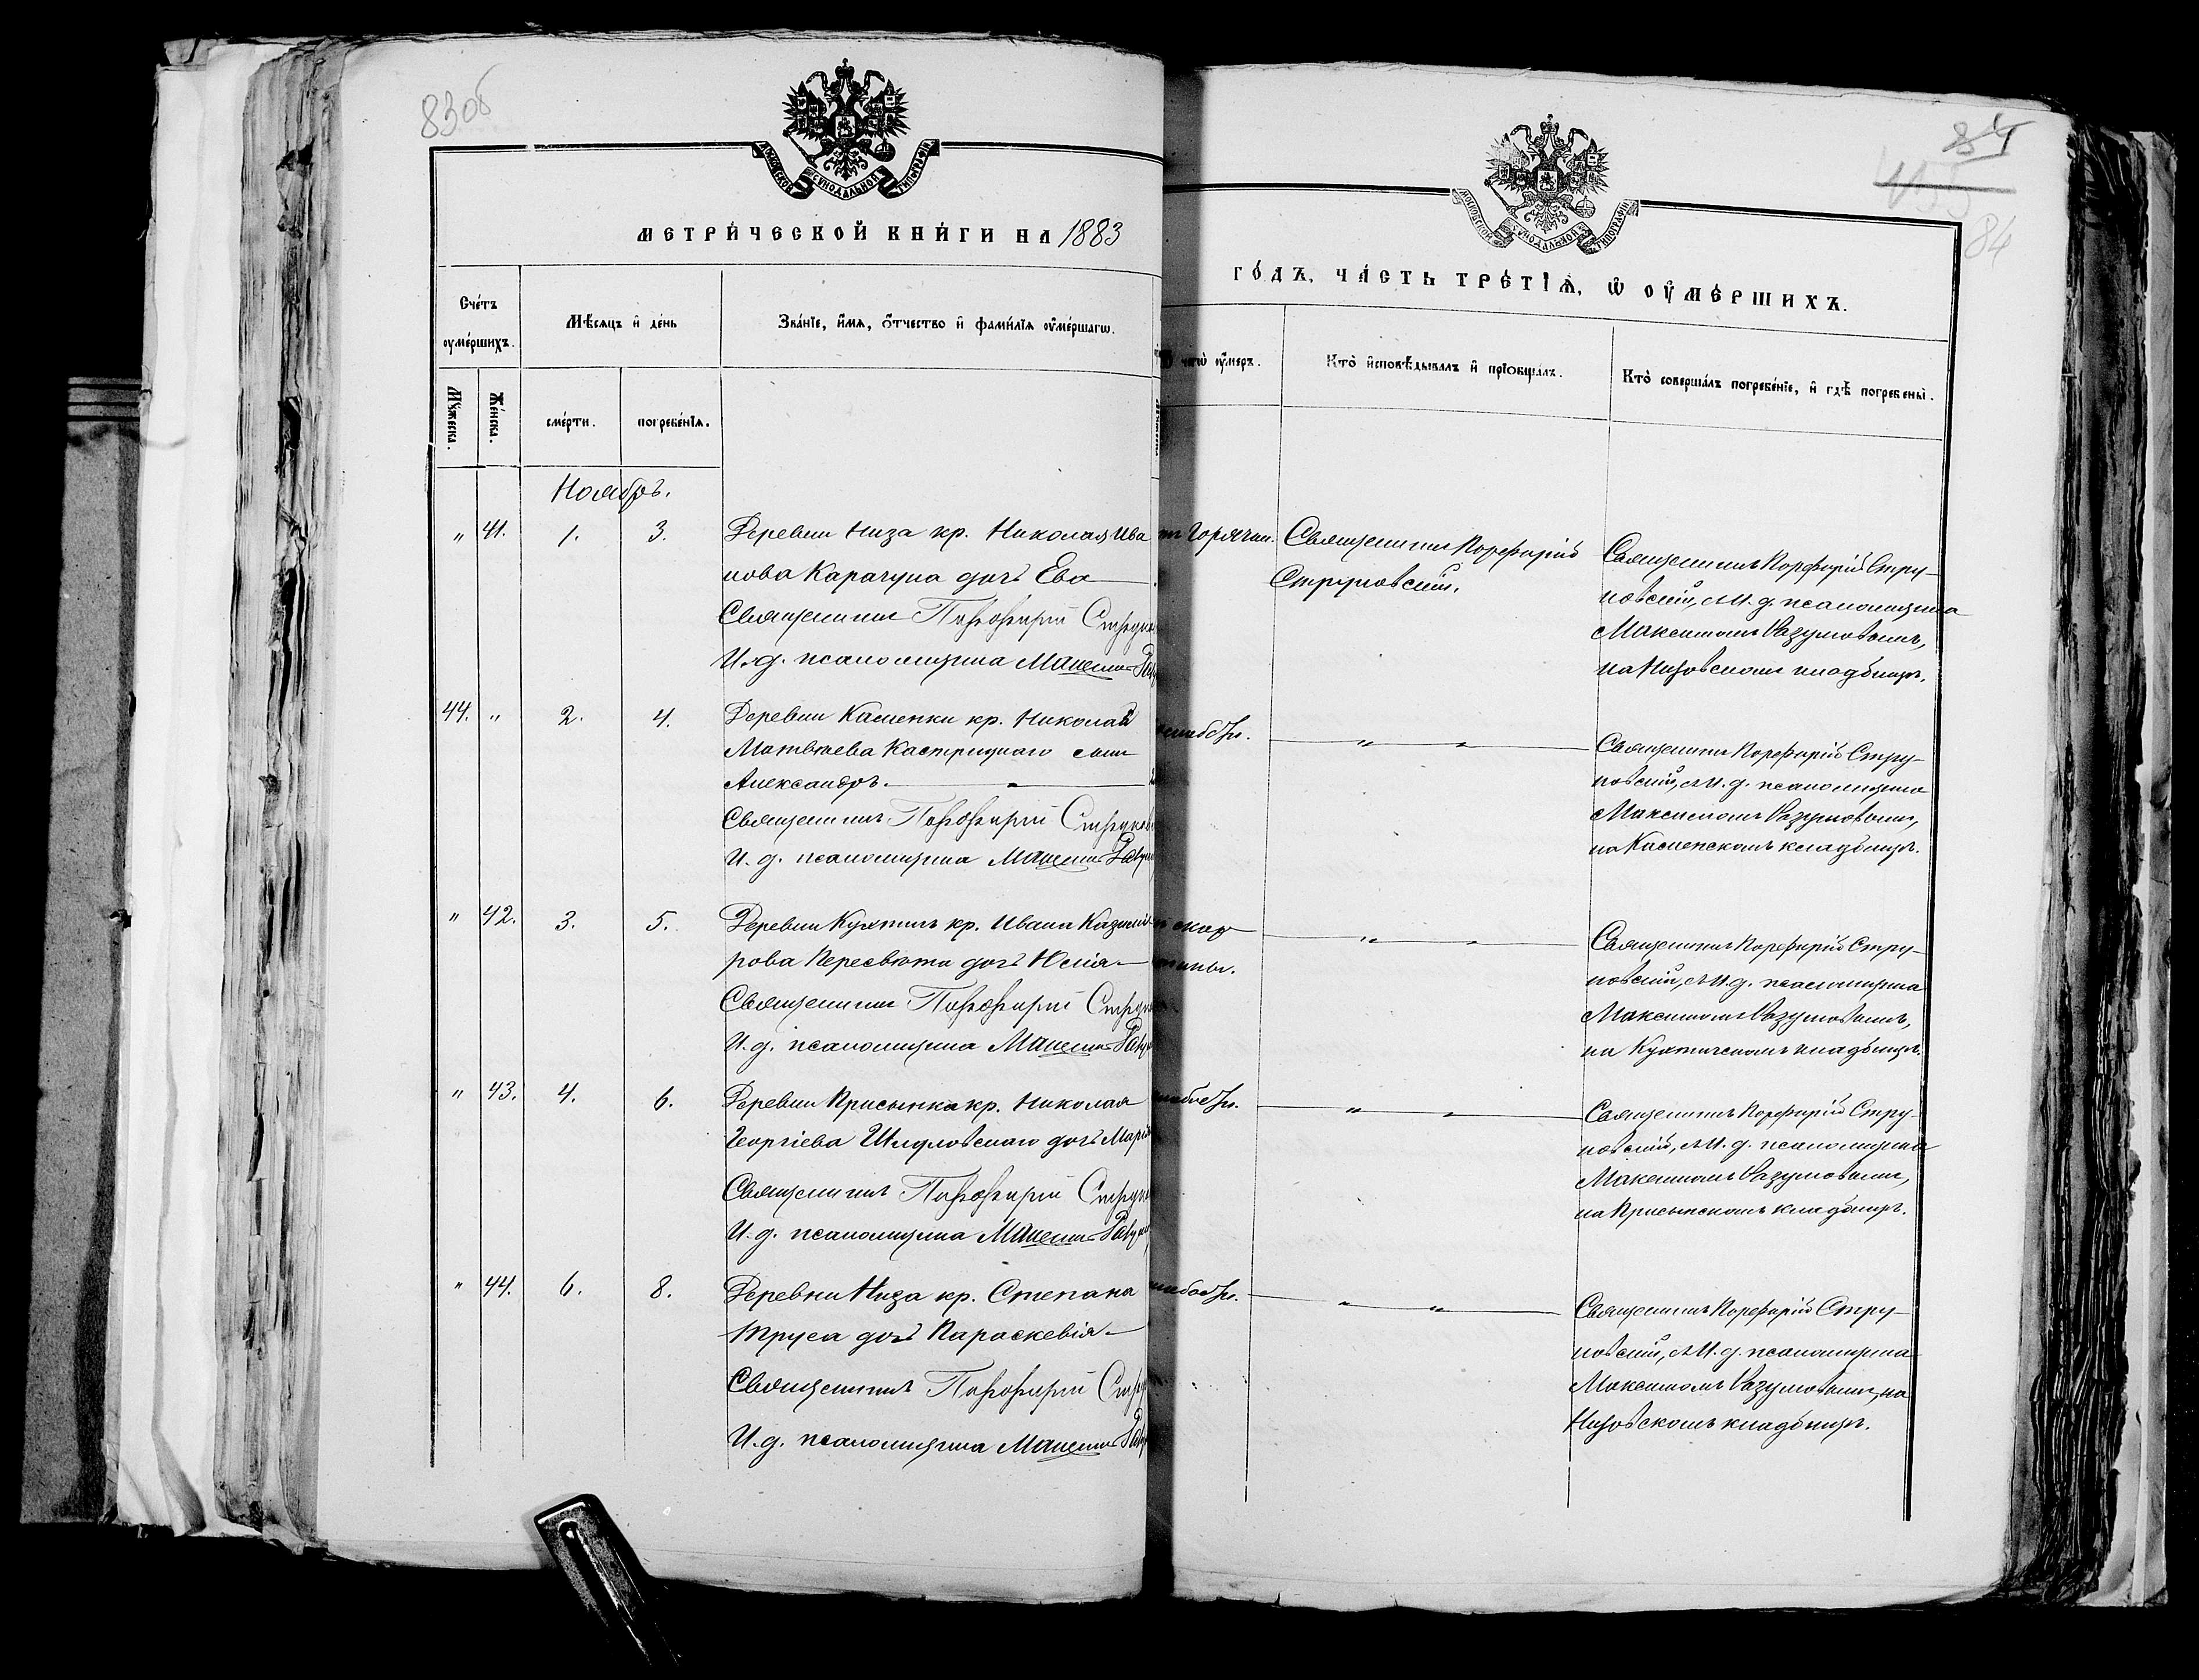 83об
МОСКОВСКОЙ СѴНОДАЛЬНОЙ ТИПОГРАФІИ
МЕТРИ́ЧЕСКОЙ КНИ́ГИ НА 1883
Счéтъ оумéршихъ.
Мѣсяцъ и҆ дéнь
Звáнїе, и҆́мѧ, ѻ҆́тчество и҆ фами́лїѧ оу҆мéршагѡ.
Мꙋ́жеска.
Жéнска.
смéрти.
погребéнїѧ.
Ноябрь.
" 41. 1. 3. Деревни Низа кр. Николая Ива
нова Карачуна дочь Ева
Священникъ Порфирій
И. д. псаломщика Максимъ
44. " 2. 4. Деревни Каменки кр. Николай
Матвѣева Кастрицкаго сынъ
Александръ.
Священникъ Порфирій
И. д. псаломщика Максимъ
" 42. 3. 5. Деревни Кухтичъ кр. Ивана Казими
рова Пересвѣта дочь Юлія
Священникъ Порфирій
И. д. псаломщика Максимъ
" 43. 4. 6. Деревни Присынка кр. Николая
Георгіева Шидловскаго дочь Марія
Священникъ Порфирій
И. д. псаломщика Максимъ
" 44. 6. 8. Деревни Низа кр. Степана
Труса дочь Параскевія
Священникъ Порфирій
И. д. псаломщика Максимъ
84
84
МОСКОВСКОЙ СѴНОДАЛЬНОЙ ТИПОГРАФІИ
ГО́ДЪ, ЧА́СТЬ ТРЕ́ТІѦ, Ѡ ОУ҆МЕ́РШИХЪ.
чегѡ̀ оу҆́меръ.
Ктò и҆сповѣ́дывалъ и҆ прїобщáлъ.
Ктò совершáлъ погребéнїе, и҆ гдѣ̀ погребены̀.
горячки.
Священникъ Порфирій
Струковскій.
Священникъ Порфирій Стру-
ковскій, съ И. д. псаломщика
Максимомъ Разумовымъ,
на Низовскомъ кладбищѣ.
" "
Священникъ Порфирій Стру-
ковскій, съ И. д. псаломщика
Максимомъ Разумовымъ,
на Каменскомъ кладбищѣ.
" "
Священникъ Порфирій Стру-
ковскій, съ И. д. псаломщика
Максимомъ Разумовымъ,
на Кухтичскомъ кладбищѣ.
" "
Священникъ Порфирій Стру-
ковскій, съ И. д. псаломщика
Максимомъ Разумовымъ,
на Присынскомъ кладбищѣ.
" "
Священникъ Порфирій Стру-
ковскій, съ И. д. псаломщика
Максимомъ Разумовымъ, на
Низовскомъ кладбищѣ.